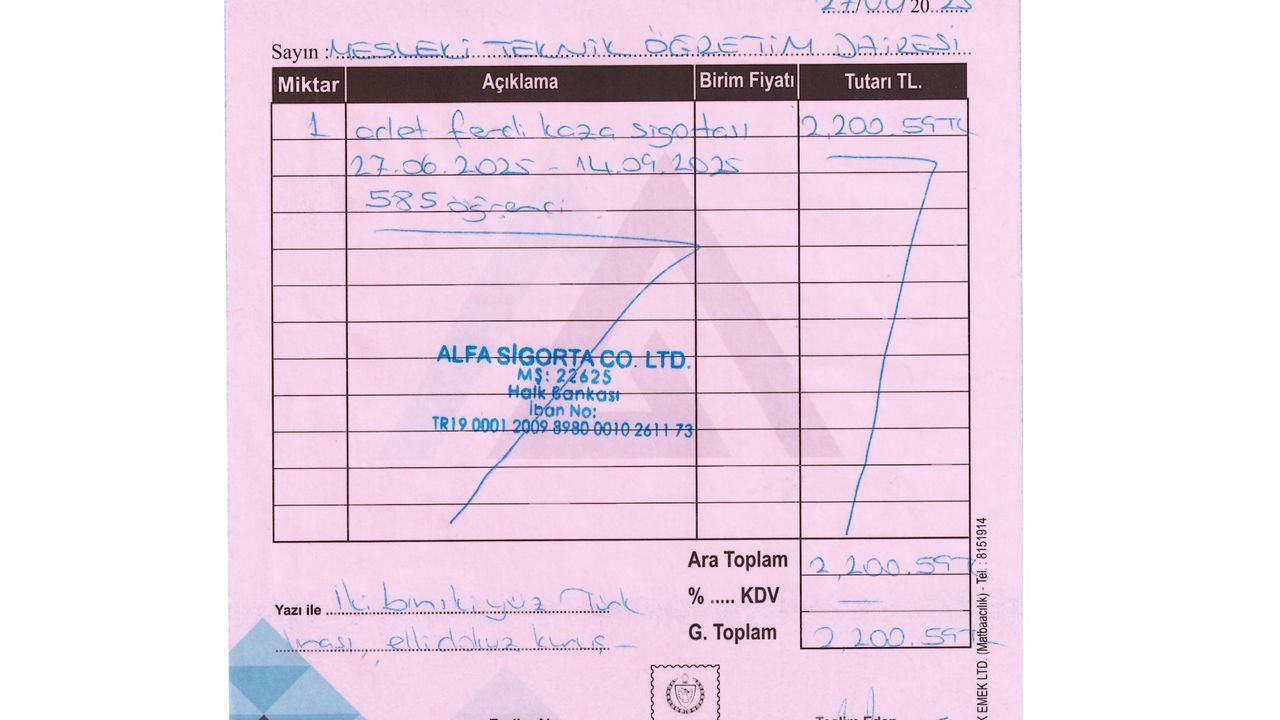 27/06/ 2025
Sayın : MESLEKİ TEKNİK ÖĞRETİM DAİRESİ
Miktar Açıklama Birim Fiyatı Tutarı TL.
1 adet ferdi kaza sigortası 2,200.59TL
27.06.2025 - 14.09.2025
585 öğrenci
ALFA SİGORTA CO. LTD.
MŞ: 22625
Halk Bankası
İban No:
TR19 0001 2009 8980 0010 2611 73
Ara Toplam 2,200.59TL
% ..... KDV —
Yazı ile İki bin iki yüz Türk
lirası, elli dokuz kuruş —
G. Toplam 2,200.59TL
K EMEK LTD. (Matbaacılık) - Tel. : 8151914
Teslim Eden